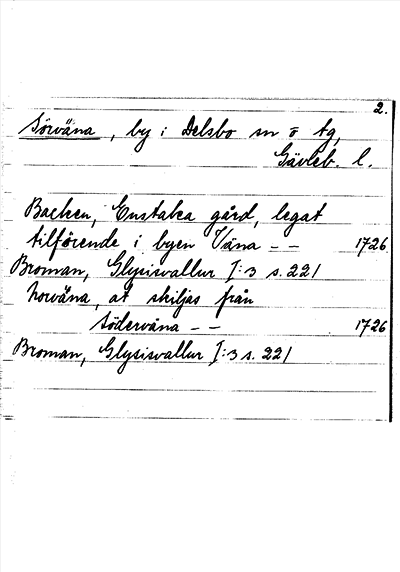 2.
Sörväna, by i Delsbo sn o tg,
Gävleb. l.
Backen, Enstaka gård, legat
tilförende i byen Väna - - 1726
Broman, Glysisvallur I:3 s. 221
Norväna, at skiljas från
Söderväna - - 1726
Broman, Glysisvallur I:3 s. 221